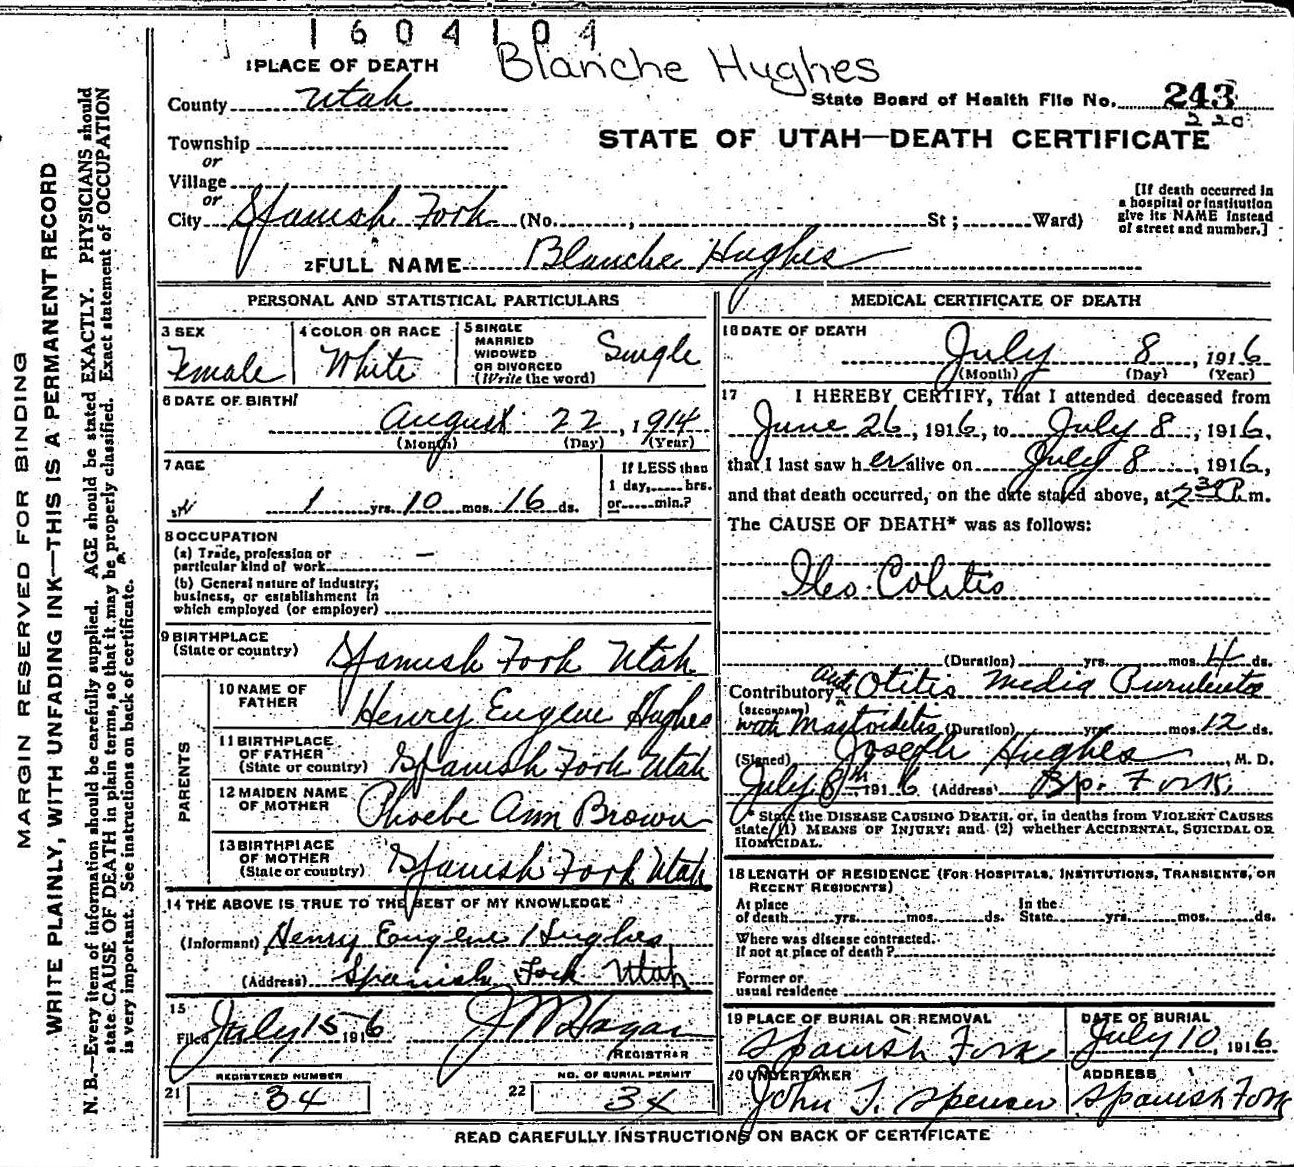 1604104
Blanche Hughes
1 PLACE OF DEATH
County Utah
State Board of Health File No. 243
220
STATE OF UTAH—DEATH CERTIFICATE
Township
or
Village
or
City Spanish Fork (No. , St ; Ward)
[If death occurred in
a hospital or institution
give its NAME instead
of street and number.]
2 FULL NAME Blanche Hughes
PERSONAL AND STATISTICAL PARTICULARS
3 SEX
Female
4 COLOR OR RACE
White
5 SINGLE
MARRIED
WIDOWED
OR DIVORCED
(Write the word)
Single
6 DATE OF BIRTH
August 22, 1914
(Month) (Day) (Year)
7 AGE
1 yrs. 10 mos. 16 ds.
If LESS than
1 day, hrs.
or min.?
8 OCCUPATION
(a) Trade, profession or
particular kind of work —
(b) General nature of industry,
business, or establishment in
which employed (or employer)
9 BIRTHPLACE
(State or country) Spanish Fork Utah
PARENTS
10 NAME OF
FATHER Henry Eugene Hughes
11 BIRTHPLACE
OF FATHER
(State or country) Spanish Fork Utah
12 MAIDEN NAME
OF MOTHER Phoebe Ann Brown
13 BIRTHPLACE
OF MOTHER
(State or country) Spanish Fork Utah
14 THE ABOVE IS TRUE TO THE BEST OF MY KNOWLEDGE
(Informant) Henry Eugene Hughes
(Address) Spanish Fork Utah
15
Filed July 15 1916 J M Hagan
REGISTRAR
REGISTERED NUMBER
21 34
NO. OF BURIAL PERMIT
22 34
MEDICAL CERTIFICATE OF DEATH
16 DATE OF DEATH
July 8, 1916
(Month) (Day) (Year)
17 I HEREBY CERTIFY, That I attended deceased from
June 26, 1916, to July 8, 1916,
that I last saw her alive on July 8, 1916,
and that death occurred, on the date stated above, at 2 30 P. m.
The CAUSE OF DEATH* was as follows:
Ileo-Colitis
(Duration) yrs. mos. 4 ds.
Contributory Otitis Media Purulenta
(SECONDARY)
with Mastoiditis (Duration) yrs. mos. 12 ds.
(Signed) Joseph Hughes, M. D.
July 8th, 1916 (Address) Sp. Fork.
* State the DISEASE CAUSING DEATH, or, in deaths from VIOLENT CAUSES
state (1) MEANS OF INJURY; and (2) whether ACCIDENTAL, SUICIDAL OR
HOMICIDAL.
18 LENGTH OF RESIDENCE (FOR HOSPITALS, INSTITUTIONS, TRANSIENTS, OR
RECENT RESIDENTS)
At place
of death yrs. mos. ds.
In the
State yrs. mos. ds.
Where was disease contracted.
If not at place of death?
Former or
usual residence
19 PLACE OF BURIAL OR REMOVAL
Spanish Fork
DATE OF BURIAL
July 10, 1916
20 UNDERTAKER
John T. Spenser
ADDRESS
Spanish Fork
READ CAREFULLY INSTRUCTIONS ON BACK OF CERTIFICATE
MARGIN RESERVED FOR BINDING
WRITE PLAINLY, WITH UNFADING INK—THIS IS A PERMANENT RECORD
N. B.—Every item of information should be carefully supplied. AGE should be stated EXACTLY. PHYSICIANS should
state CAUSE OF DEATH in plain terms, so that it may be properly classified. Exact statement of OCCUPATION
is very important. See instructions on back of certificate.